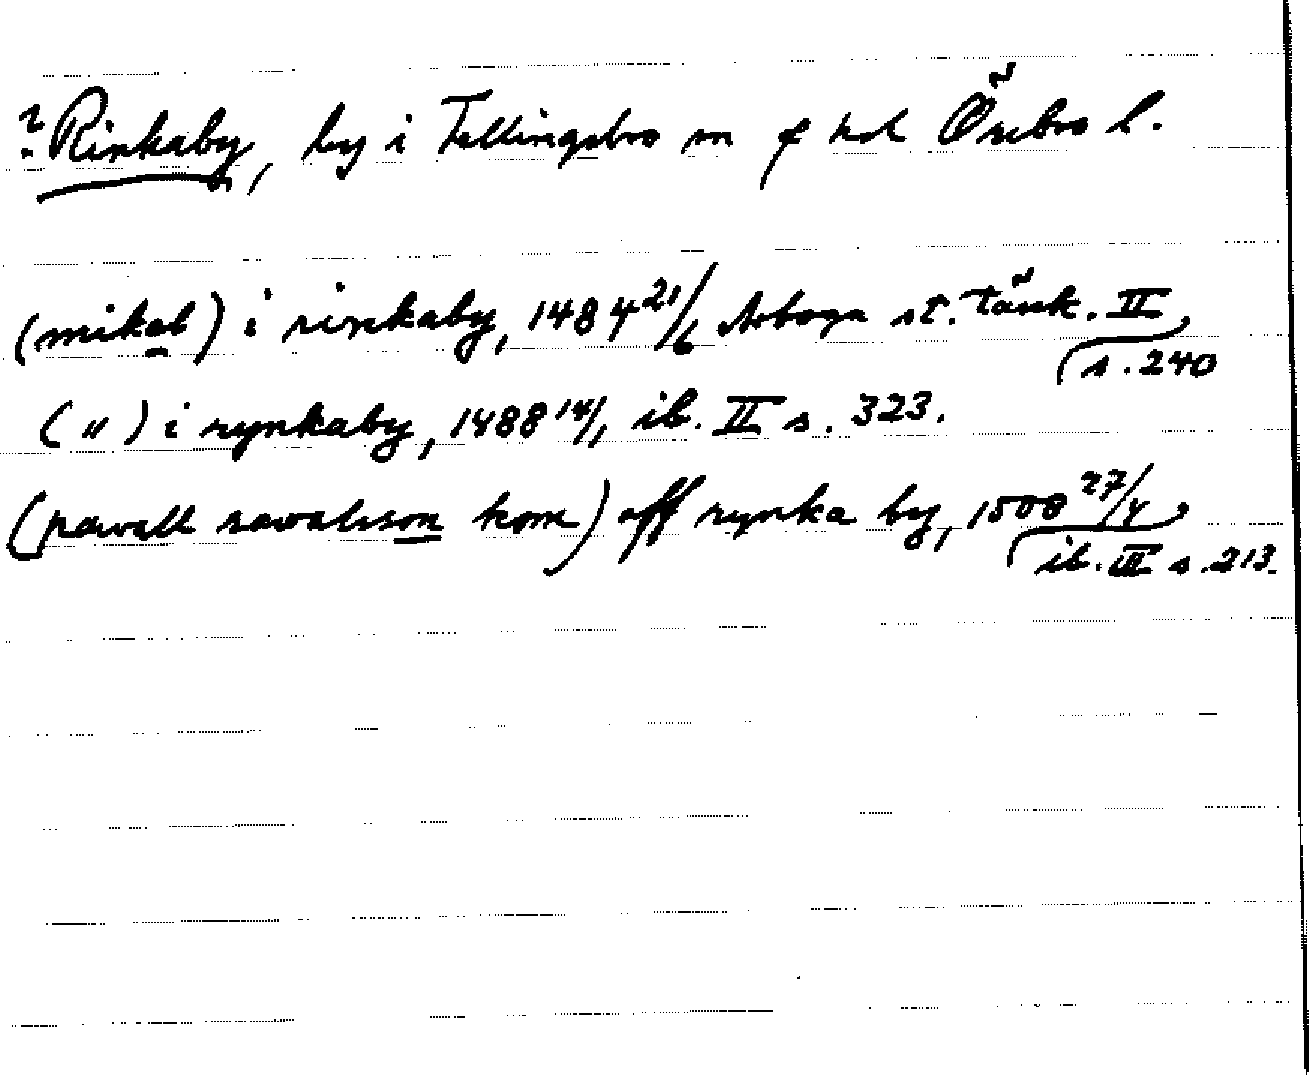 ? Rinkaby, by i Fellingsbro sn o hd Örebro l.
(mikel) i rinkaby, 1484 21/6 Arboga st. tänk. II
s. 240
( " ) i rynkaby, 1488 14/1, ib. II s. 323.
(pawall sawalsson kom) aff rynka by, 1500 27/4
ib. III s. 213.